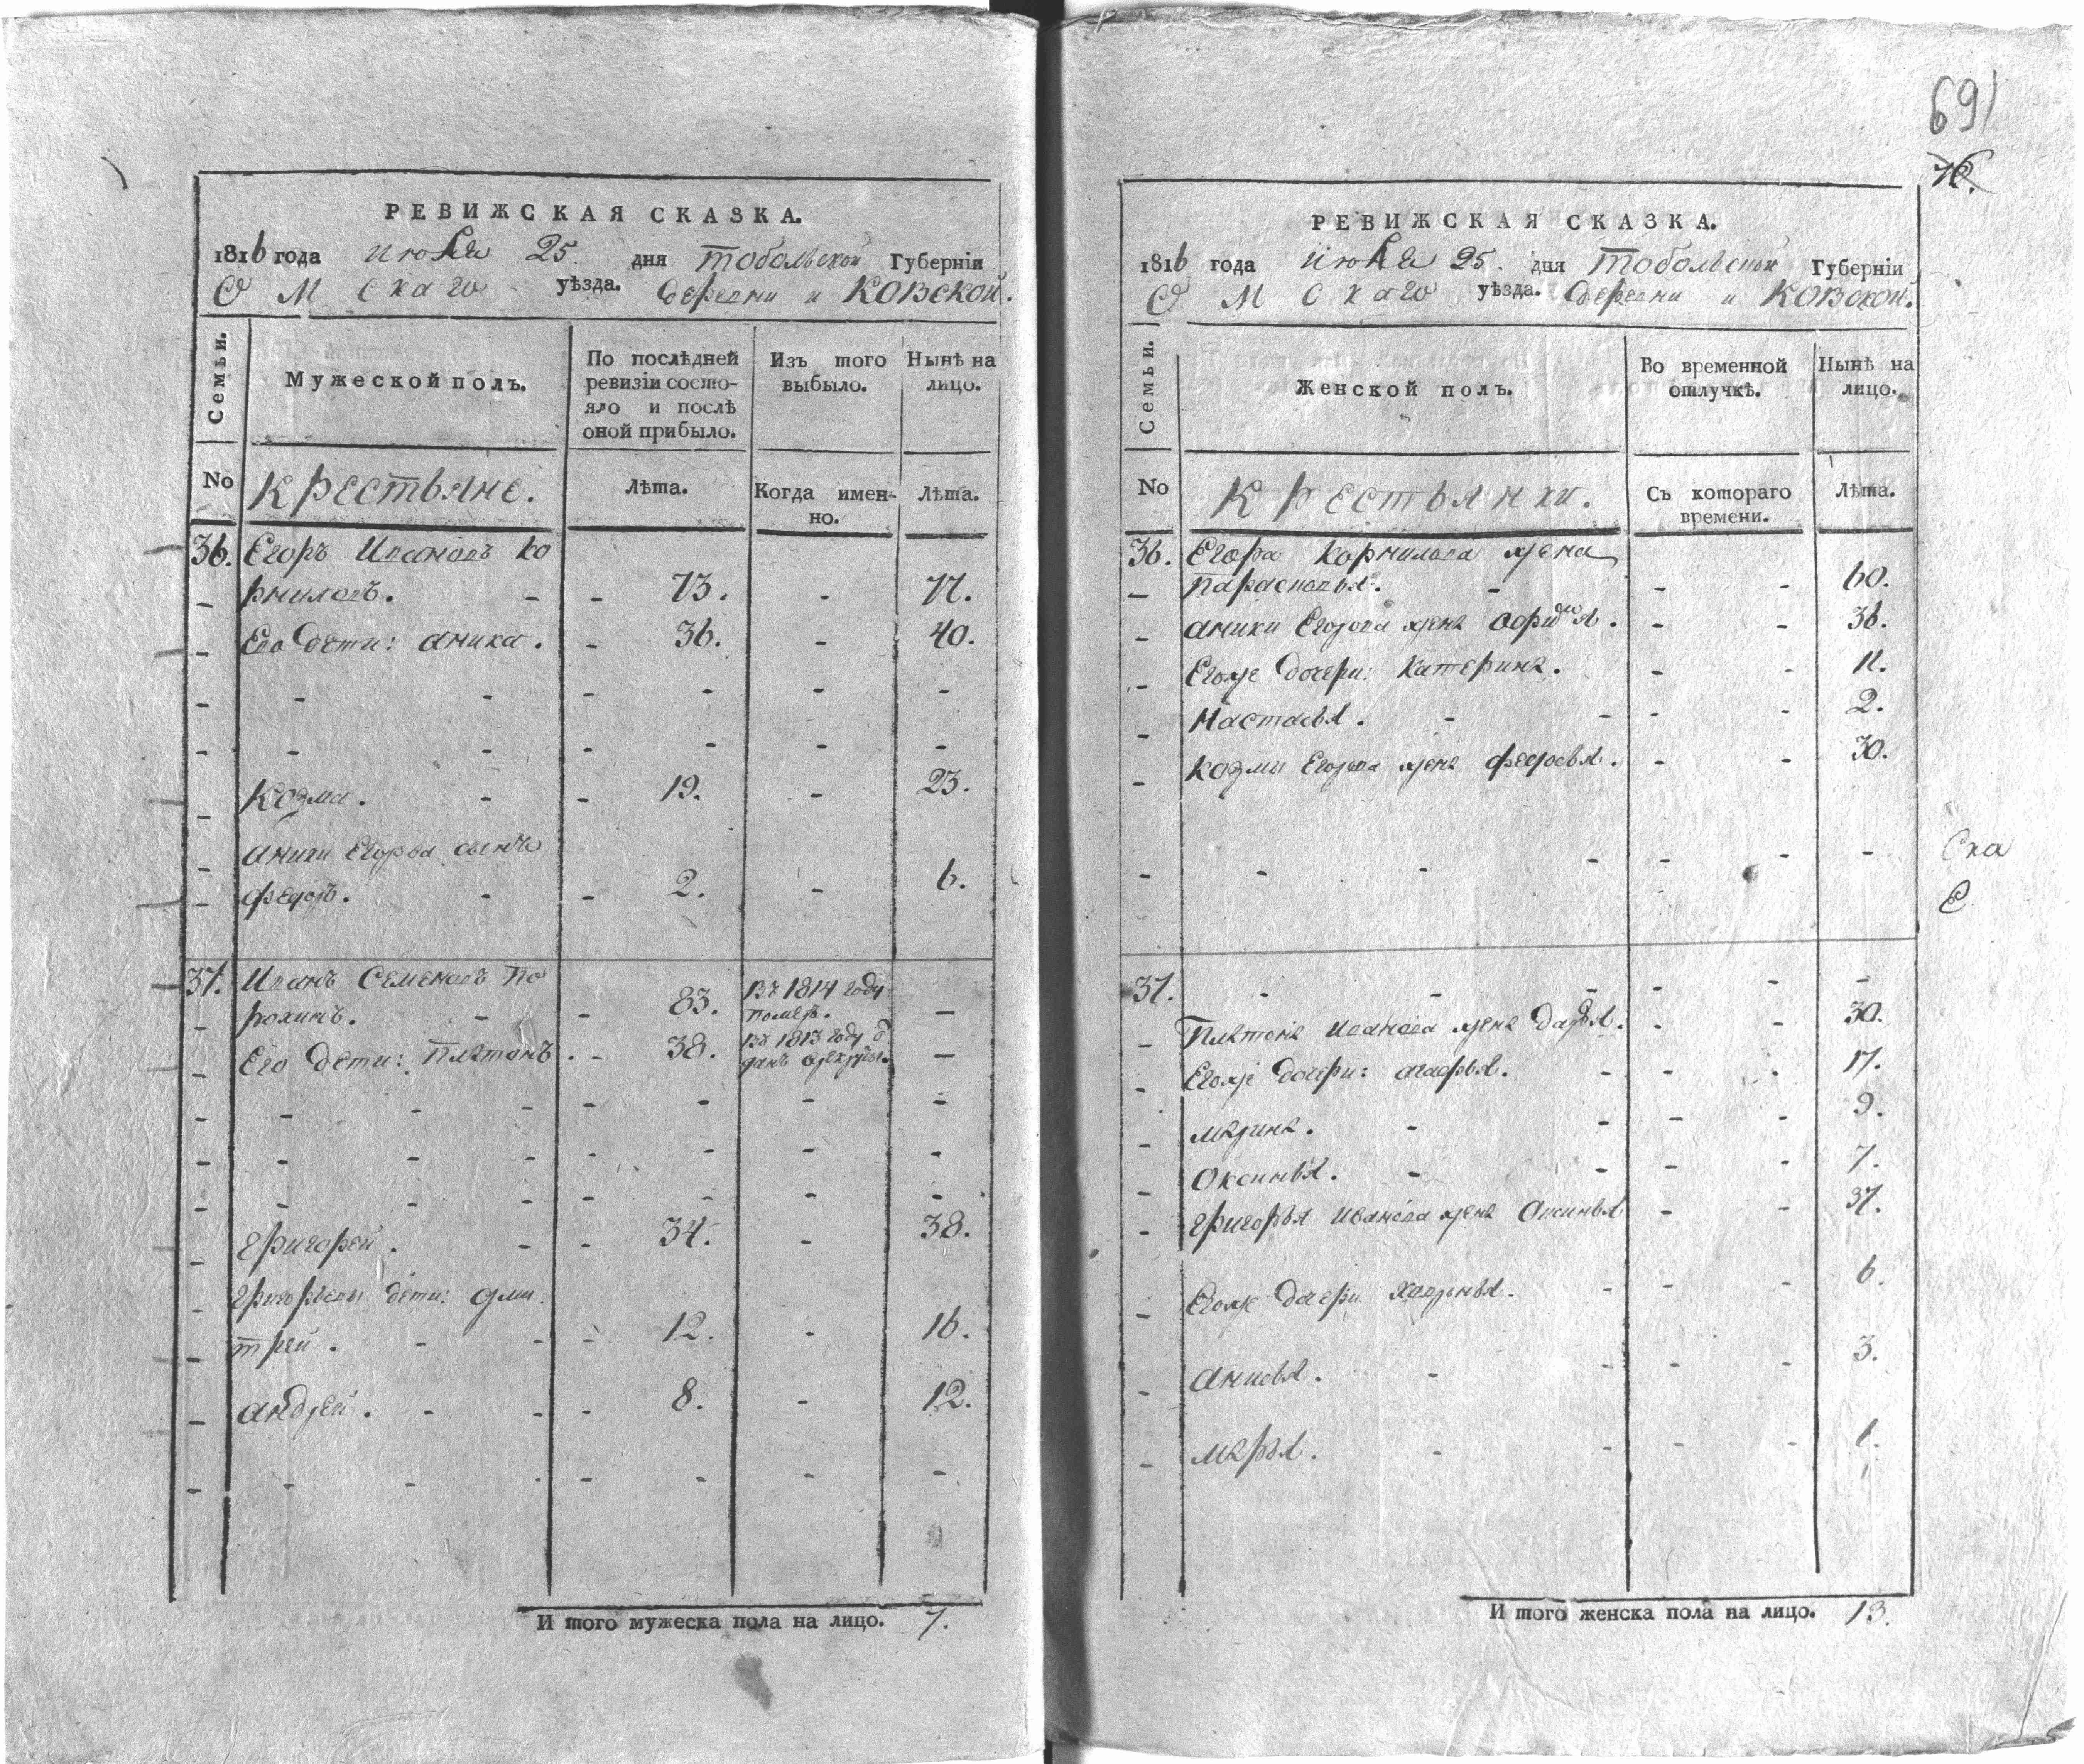 РЕВИЖСКАЯ СКАЗКА.
1816 года июля 25. дня Тобольской Губерніи
Омскаго уѣзда. деревни Иковской.
Семьи.
Мужеской полъ.
По послѣдней ревизіи состояло и послѣ оной прибыло.
Изъ того выбыло.
Нынѣ на лицо.
No
Крестьяне.
Лѣта.
Когда именно.
Лѣта.
36. Егоръ Ивановъ Ко
рниловъ. - - 73. - 77.
Его дети: Аника. - 36. - 40.
- - - - - - -
- - - - - - -
Козма. - - 19. - 23.
Аники Егорова сынъ
Федоръ. - - 2. - 6.
37. Иванъ Семеновъ По
рохинъ. - - 83. въ 1814 году померъ. -
Его дети: Платонъ. - 38. въ 1813 году о данъ врекруты. -
- - - - - - -
- - - - - - -
- - - - - - -
Григорей. - - 34. - 38.
Григорьевы дети: Дми
трей. - - - 12. - 16.
Андрей. - - - 8. - 12.
- - - - - - -
И того мужеска пола на лицо. 7.
69
РЕВИЖСКАЯ СКАЗКА.
1816 года июля 25. дня Тобольской Губерніи
Омскаго уѣзда. деревни Иковской.
Семьи.
Женской полъ.
Во временной отлучкѣ.
Нынѣ на лицо.
No
Крестьянки.
Съ котораго времени.
Лѣта.
36. Егора Корнилова жена
Парасковья. - - - 60.
Аники Егорова жена - - 36.
Егоже дочери: Катерина. - - 11.
Настасья. - - - - 2.
Козмы Егорова жена Федосья. - - 30.
- - - - - -
Ска
С
37. - - - - - -
Платона Иванова жена Дарья. - - 30.
Егоже дочери: Агафья. - - - 17.
Марина. - - - - 9.
Оксинья. - - - - 7.
Григорья Иванова жена Оксинья - - 37.
Егоже дочери - - - 6.
Анисья. - - - - 3.
Марья. - - - - 1.
И того женска пола на лицо. 13.